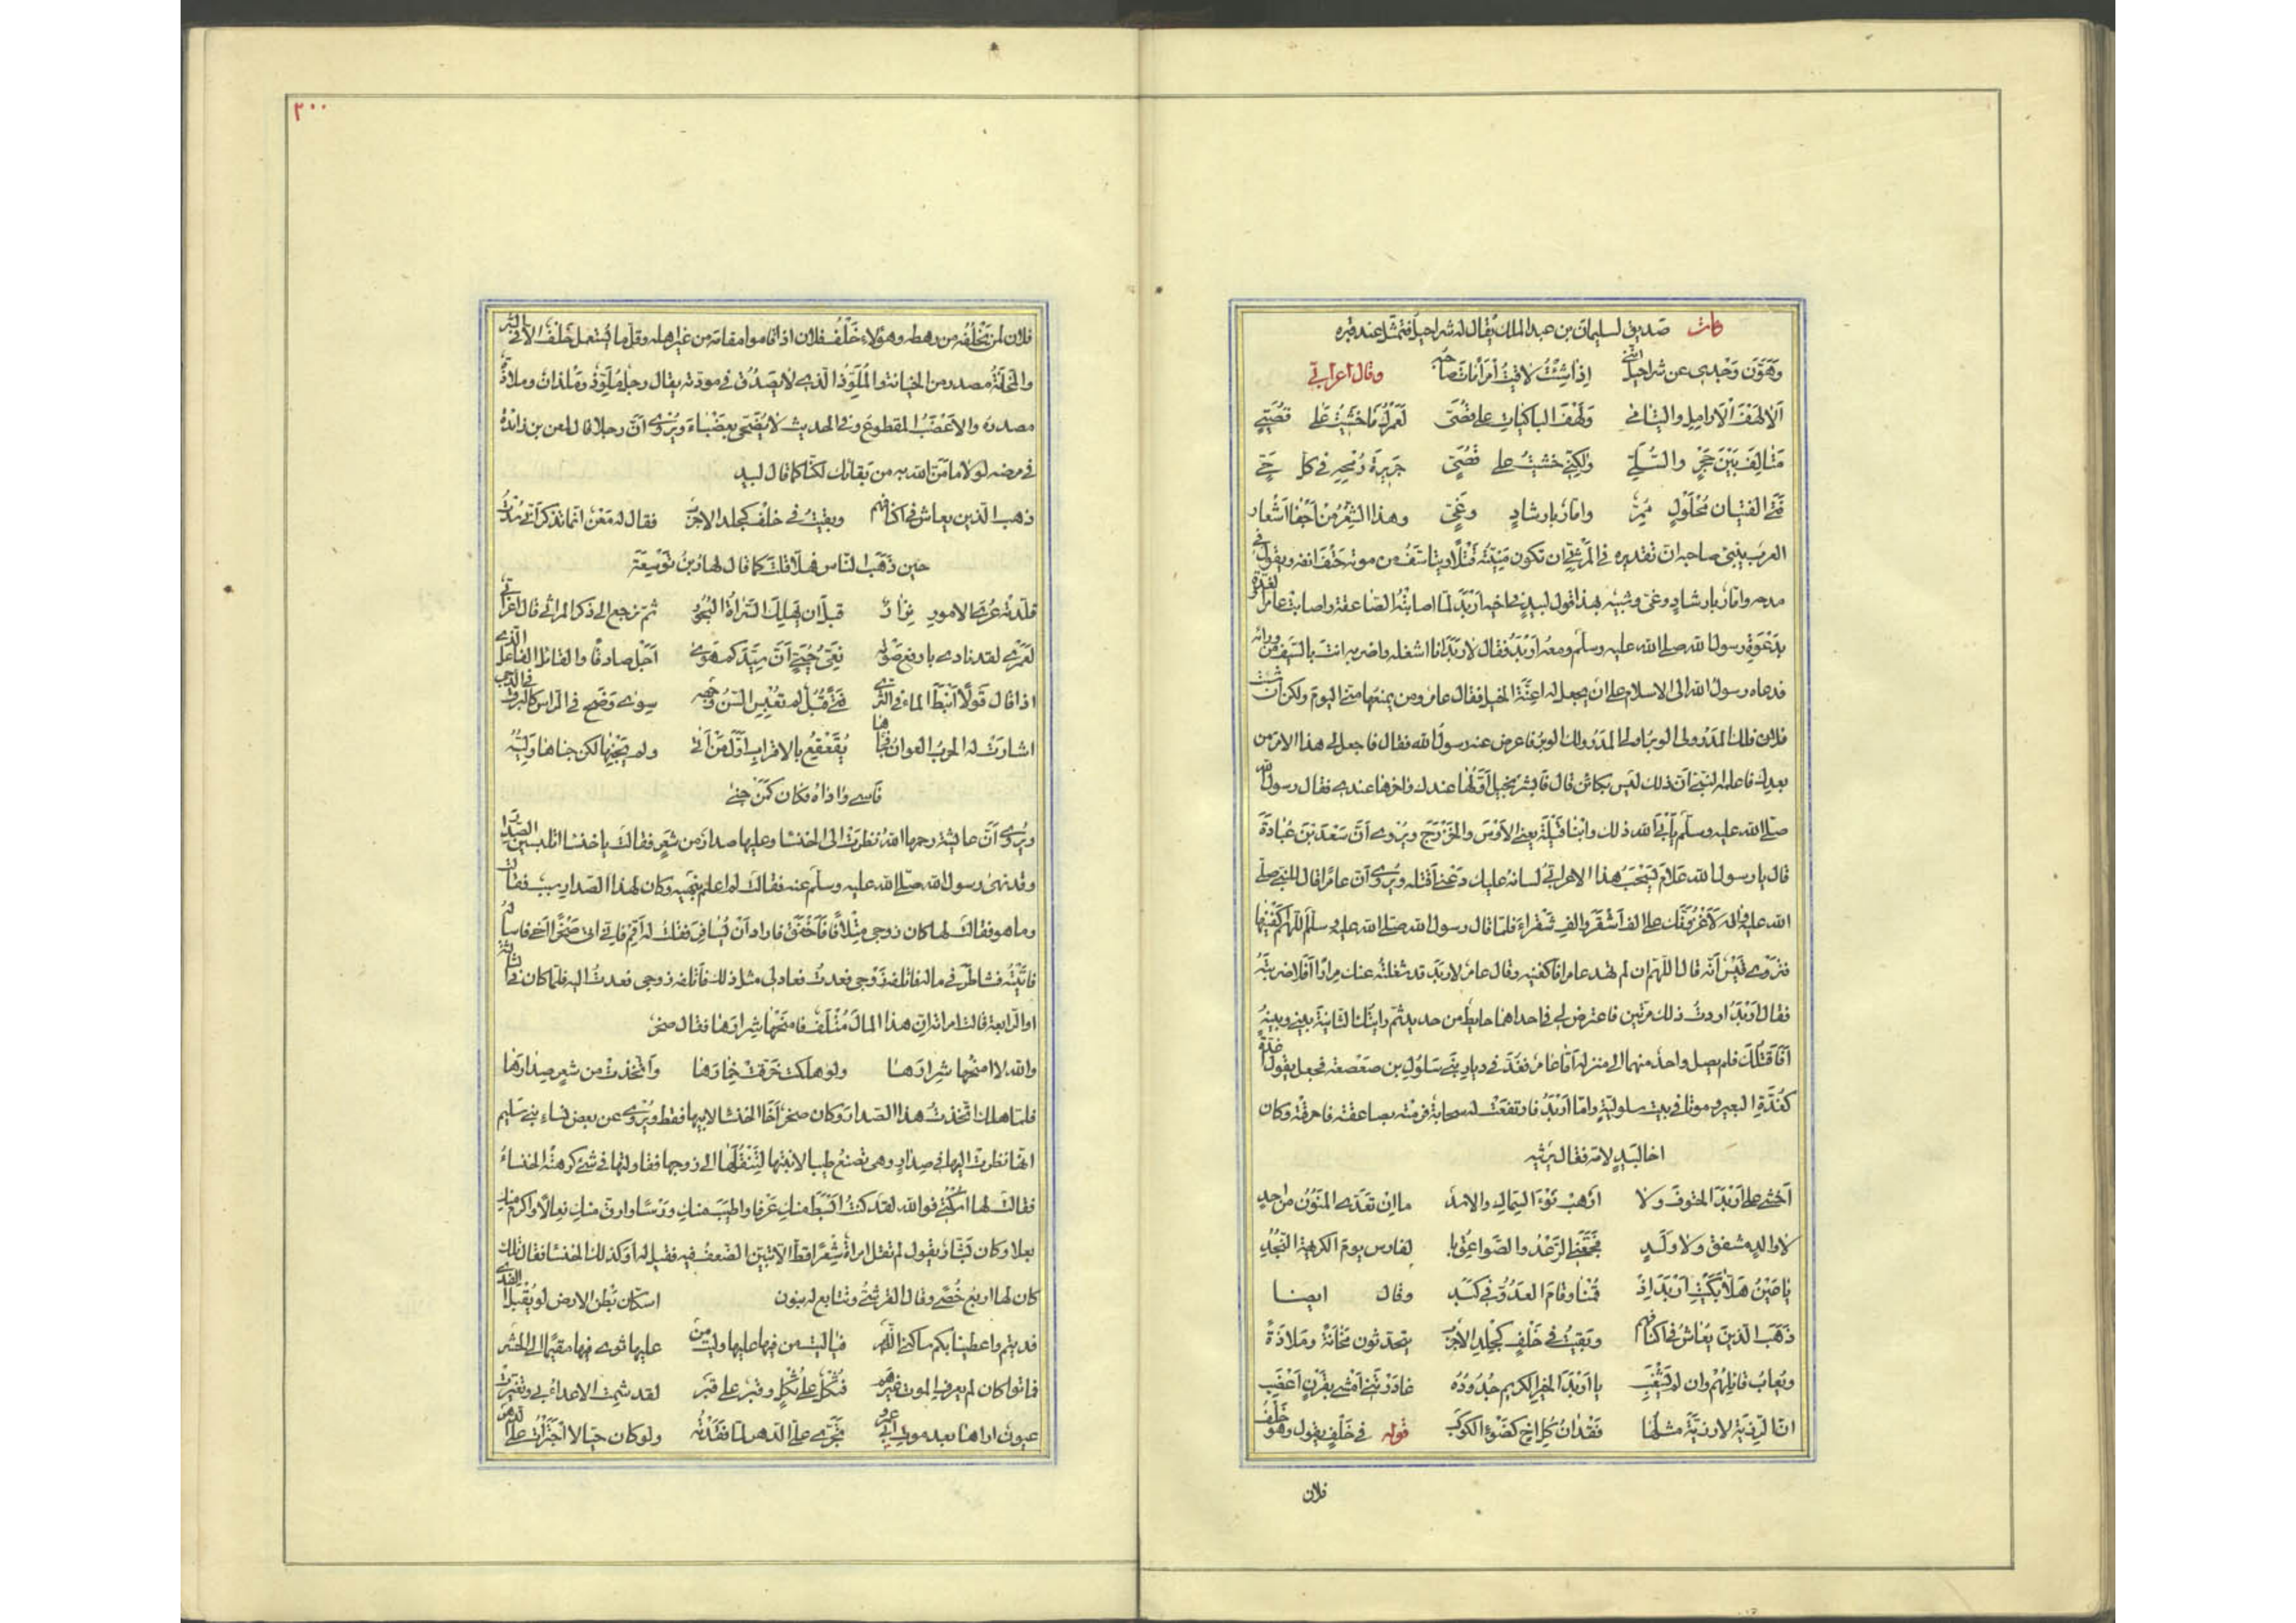 مات صديق لسليمان بن عبد الملك يقال له شراحيل فتمثل عند قبره
وَهَوَّنَ وَجْدي عن شراحيل أنني إذا شئتُ لاقيتُ امرأ مات صاحبه وقال أعرابيّ
ألا لهفَ الأرامل واليتامى ولهفَ الباكيات على قُصَيّ لعمرك ما خشيتُ على قُصَيّ
مَتالِفَ بين حَجْرٍ والسُّلَيّ ولكنّي خشيتُ على قُصَيّ جريرةَ رُمحه في كل حيّ
فتى الفتيان مُحلَولٍ مُمِرّ وأمّارٌ بإرشادٍ وغيّ وهذا الشعر من أجفا أشعار
العرب ينبئ صاحبه ان تقديره في المرثيّ ان تكون منيّته قتلا ويتأسّف من موته حتف انفه ويقول في
مدحه وامّار بارشاد وغيّ وشبيه بهذا قول لبيد في اخيه اربد لما اصابته الصاعقة واصابت عامرا الغدّة
بدعوة رسول الله صلى الله عليه وسلم ومعه اربد فقال لاربد انا اشغله واضربه انت بالسيف من ورائه
فدعاه رسول الله الى الاسلام على ان يجعل له اعنّة الخيل فقال عامر ومن يمنعها منّي اليوم ولكن ان شئت
فلان فلك المدر ولي الوبر او لي المدر ولك الوبر فاعرض عنه رسول الله فقال فاجعل لي هذا الامر من
بعدك فاعلمه النبي ان ذلك ليس بكائن قال فابشر بخيل اوّلها عندك واخرها عندي فقال رسول الله
صلّى الله عليه وسلّم يأبى الله ذلك وابنا قيلة يعني الأوس والخزرج ويُروى أنّ سعد بن عُبادة
قال يا رسول الله علام يسحب هذا الاعرابيّ لسانه عليك دعني اقتله ويروى أنّ عامرا قال للنبي صلّى
الله عليه واله لاغزونّك على الف اشقر والف شقراء فلما قال رسول الله صلّى الله عليه وسلّم اللهمّ اكفنيهما
فتروي قيس أنّه قال اللّهمّ ان لم تهد عامرا فاكفنيه وقال عامر لاربد قد شغلته عنك مرارا افلا ضربته
فقال اربد اردت ذلك مرتين فاعترض لي في احداهما حايط من حديد ثم رايتك الثانية بيني وبينه
أفأقتلك فلم يصل واحد منهما الى منزله أمّا عامر فغدّ في ديار بني سلول بن صعصعة فجعل يقول اغدّة
كغُدّة البعير وموتا في بيت سلوليّة وامّا اربد فارتفعت له سحابة فرمته بصاعقة فاحرقته وكان
اخا لبيد لامّه فقال يرثيه
أخشى على أربدَ الحتوفَ ولا أرهبُ نوءَ السماك والأسد ما إن تعدّي المنون من احد
لا والدٍ مشفق ولا ولدٍ فجّعني الرّعد والصّواعق بالـ فارس يوم الكريهة النجد
يا عين هلّا بكيتِ أربد إذ قمنا وقام العدوّ في كبد وقال ايضا
ذهب الذين يُعاش في اكنافهم وبقيتُ في خَلْفٍ كجلد الأجرب يتحدثون مَخانةً ومَلاذةً
ويُعاب قائلهم وان لم يشغب يا اربد الخير الكريم جدوده غادرتني أمشي بقرن أعضب
انّ الرزيّة لا رزيّة مثلها فقدان كلّ اخ كضوء الكوكب قوله في خلف يقول هو خَلَف
فلان
٣٠٠
فلان لمن يَخْلُفه من رهطه وهؤلاء خَلْف فلان اذا قاموا مقامه من غير اهله وقلّ ما يُستعمل خَلْف الا في الشر
والمخانة مصدر من الخيانة والمُلوِّذ الذي لا يصدُق في مودّته يقال رجل مُلوِّذ ومَلَذان وملاذة
مصدره والاعضب المقطوع وفي الحديث لا يُضحّى بعضباء ويُروى أنّ رجلا قال لمعن بن زائدة
في مرضه لولا ما منّ الله به من بقائك لكنّا كما قال لبيد
ذهب الذين يعاش في اكنافهم وبقيتُ في خلْف كجلد الاجرب فقال له معن انما تذكر أني سُدْتُ
حين ذهب الناس فهلّا قلت كما قال نهار بن توسعة
قلّدته عُرَى الامور نزار قبل ان تهلك السّراة البحور ثم نرجع الى ذكر المراثي قال اعرابيّ
لعمري لقد نادى بارفع صوته نعيّ حُييّ أنّ سيّدكم هوى أجل صادقا والقائل الفاعل الذي
اذا قال قولا أنبط الماء في الثرى فتى قُبُلٌ لم تُعنِس السنّ وجهه سوى وَضَح في الراس كالبرق في الدجى
اشارت له الحرب العوان فجاءها يُقعقع بالاقراب أوّل من أتى ولم يجنها لكن جناها وليّه
فآسى وآداه فكان كمن جنى
ويُروى أنّ عائشة رحمها الله نظرت الى الخنساء وعليها صدار من شعر فقالت يا خنسا اتلبسين الصدار
وقد نهى رسول الله صلّى الله عليه وسلّم عنه فقالت لم اعلم بنهيه وكان لهذا الصدار سبب فقالت
وما هو فقالت لها كان زوجي متلافا فأخفق فاراد أن يُسافر فقلت له أقم فانّي اتي صخرا اخي فاساله
فاتيته فشاطرني ماله فاتلفه زوجي فعدت فعاد لي مثل ذلك فأتلفه زوجي فعدت اليه فلمّا كان في الثالثة
او الرابعة قالت امراته انّ هذا المال مُتلَف فامنحها شرارها فقال صخر
والله لا امنحها شرارها ولو هلكت خرّقت خمارها واتّخذت من شعر صدارها
فلمّا هلك اتّخذت هذا الصدار وكان صخر أخا الخنسا لابيها فقط ويُروى عن بعض نساء بني سليم
انّها نظرت اليها في صدار وهي تصنع طيبا لابنتها لتنقلها الى زوجها فقاولتها في شيء كرهته الخنساء
فقالت لها اسكتي فوالله لقد كنتُ ابسط منكِ عَرفا واطيب منكِ ورسا وارق منكِ نعالا واكرم منك
بعلا وكان بشّار يقول لم تقل امراة شعرا قطّ الّا تبيّن الضعف فيه فقيل له أوكذلك الخنسا فقال تلك
كان لها اربع خُصًى وقال القرشيّ وتتابع له بنون اسكّان بطن الارض لو يُقبل الفدى
فديتم واعطينا بكم ساكني الظهر فيا ليت من فيها عليها وليت من عليها ثوى فيها مقيما الى الحشر
فماتوا كان لم يعرف الموت غيرهم فثُكل على ثُكل وقبر على قبر لقد شمت الاعداء بي وتغيّرت
عيون اراها بعد موت ابي عمرو تجرّى عليّ الدهر لمّا فقدته ولو كان حيّا لاجترأت على الدهر